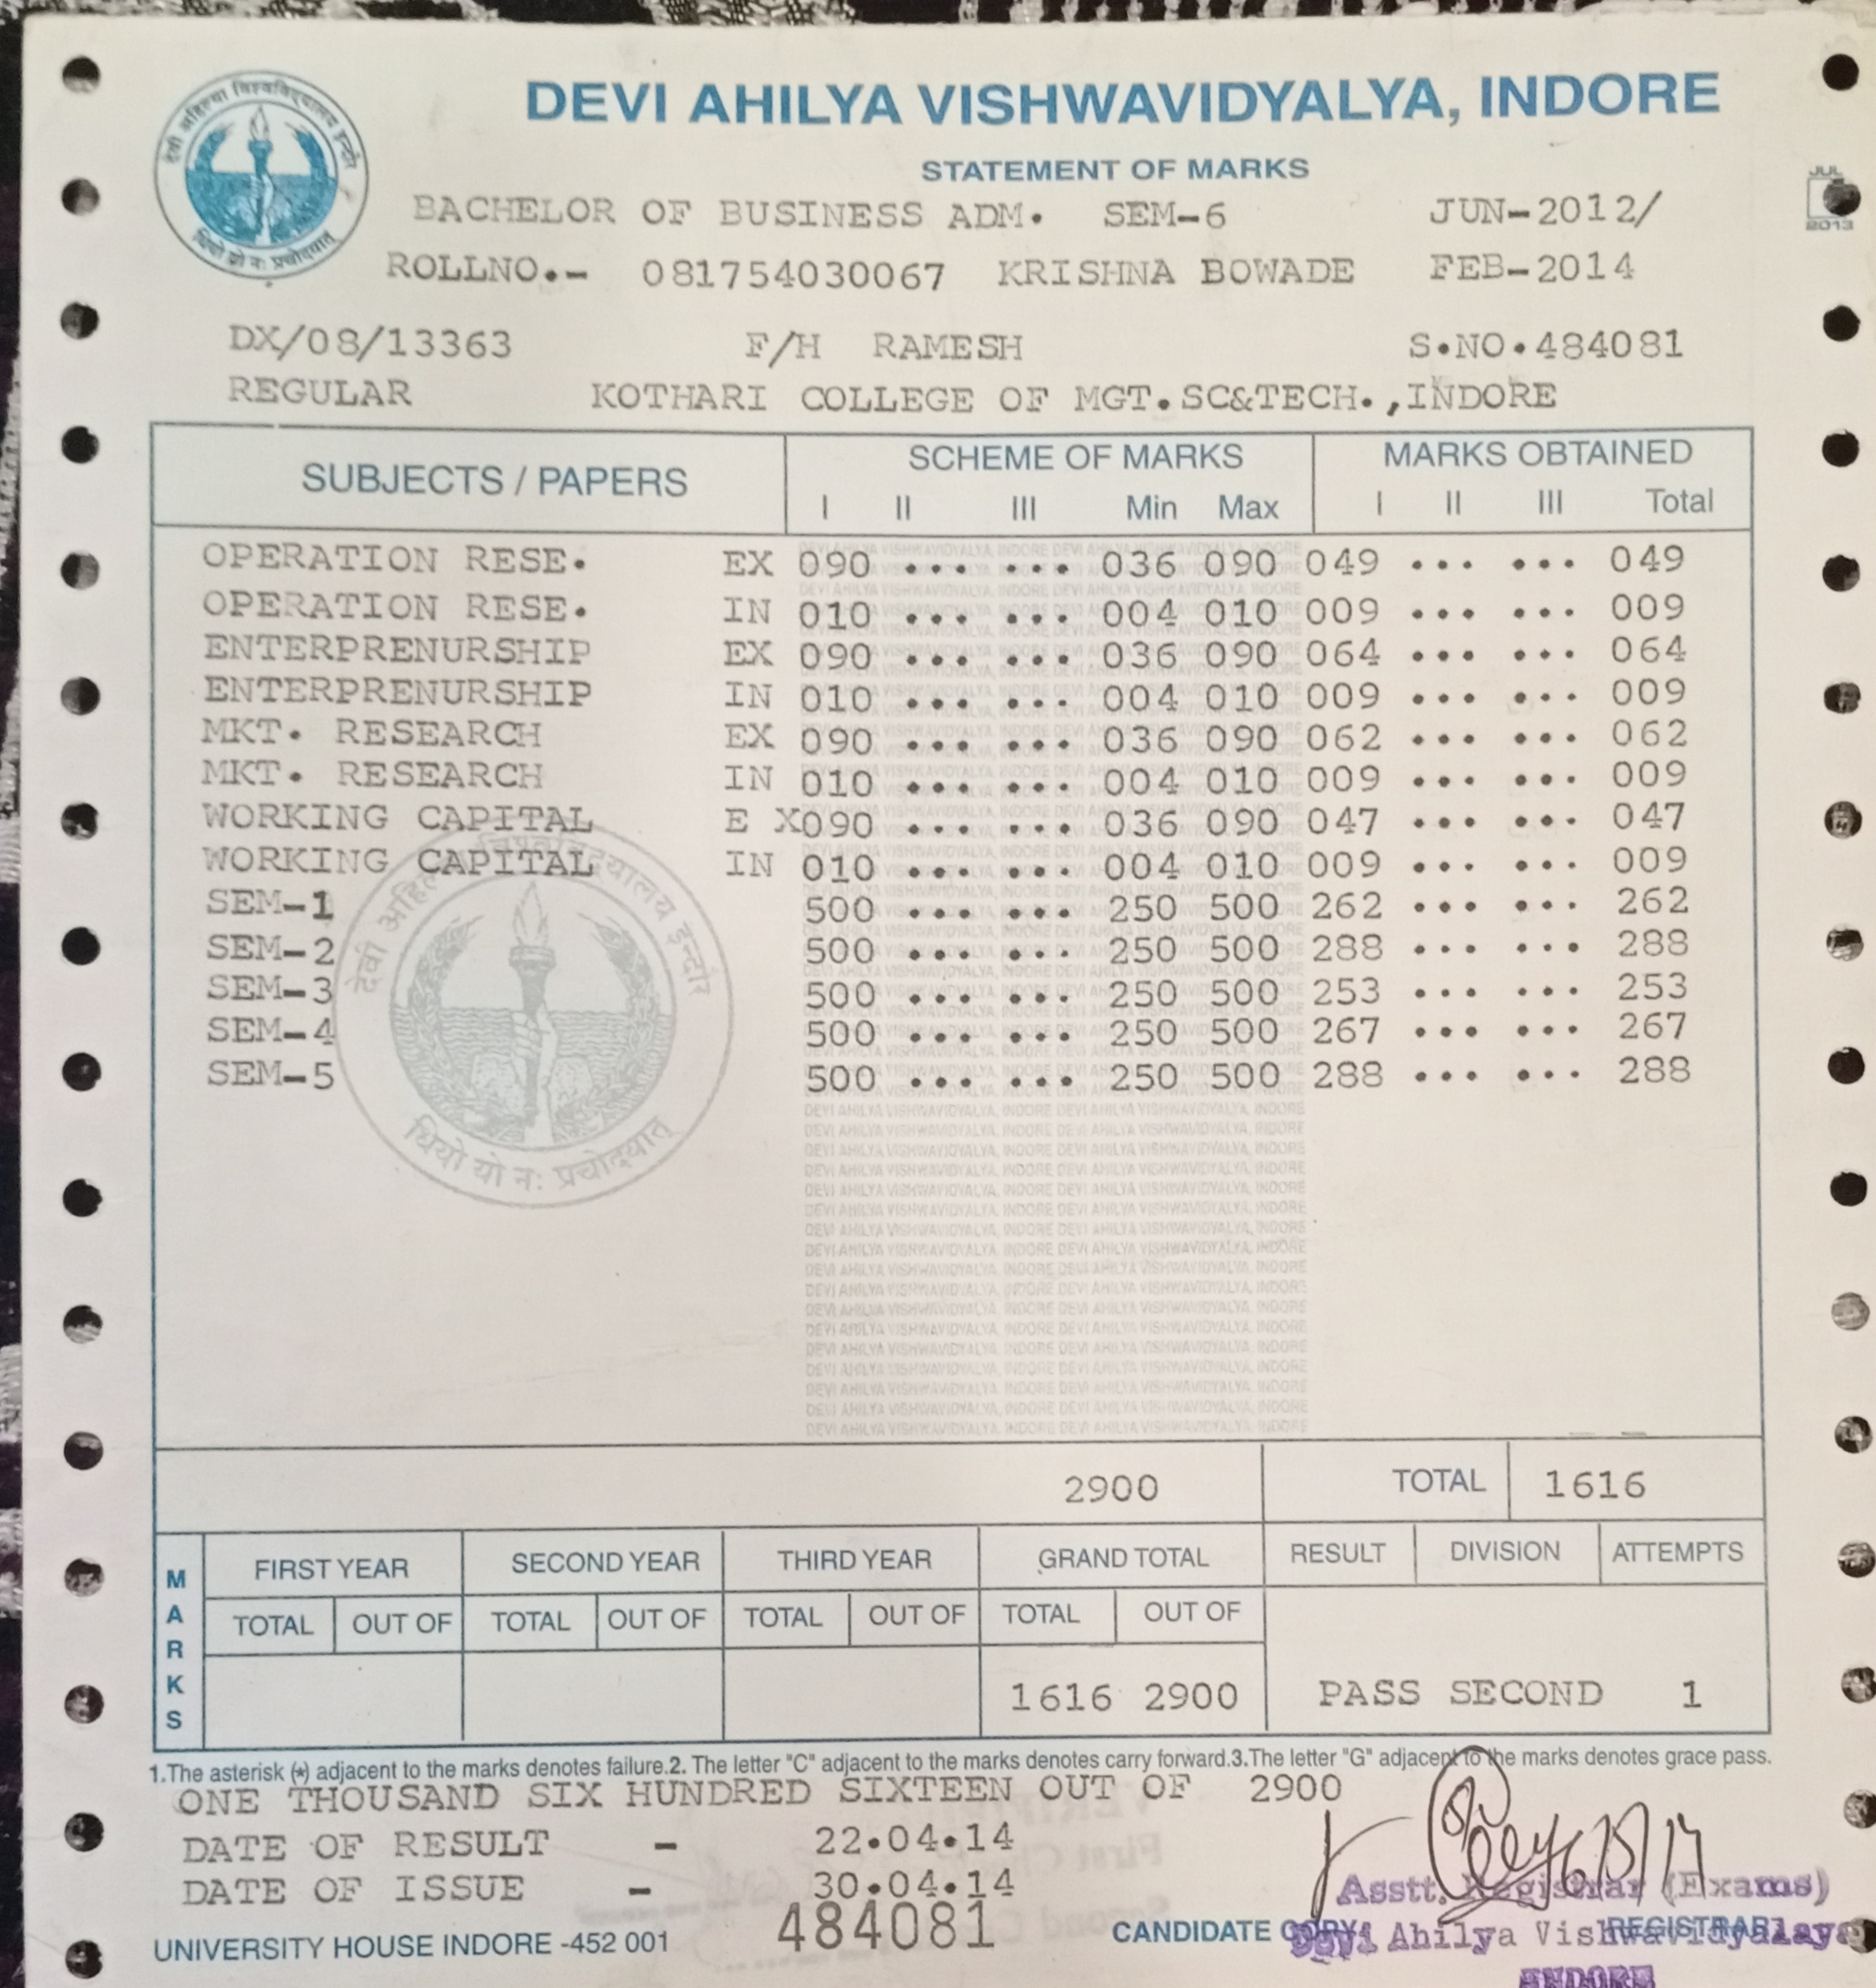 देवी अहिल्या विश्वविद्यालय इन्दौर
धियो यो नः प्रचोदयात्
DEVI AHILYA VISHWAVIDYALYA, INDORE
STATEMENT OF MARKS
JUL
2013
BACHELOR OF BUSINESS ADM. SEM-6 JUN-2012/
ROLLNO.- 081754030067 KRISHNA BOWADE FEB-2014
DX/08/13363 F/H RAMESH S.NO.484081
REGULAR KOTHARI COLLEGE OF MGT.SC&TECH.,INDORE
SUBJECTS / PAPERS SCHEME OF MARKS MARKS OBTAINED
I II III Min Max I II III Total
OPERATION RESE. EX 090 ... ... 036 090 049 ... ... 049
OPERATION RESE. IN 010 ... ... 004 010 009 ... ... 009
ENTERPRENURSHIP EX 090 ... ... 036 090 064 ... ... 064
ENTERPRENURSHIP IN 010 ... ... 004 010 009 ... ... 009
MKT. RESEARCH EX 090 ... ... 036 090 062 ... ... 062
MKT. RESEARCH IN 010 ... ... 004 010 009 ... ... 009
WORKING CAPITAL E X090 ... ... 036 090 047 ... ... 047
WORKING CAPITAL IN 010 ... ... 004 010 009 ... ... 009
SEM-1 500 ... ... 250 500 262 ... ... 262
SEM-2 500 ... ... 250 500 288 ... ... 288
SEM-3 500 ... ... 250 500 253 ... ... 253
SEM-4 500 ... ... 250 500 267 ... ... 267
SEM-5 500 ... ... 250 500 288 ... ... 288
देवी अहिल्या विश्वविद्यालय इन्दौर
धियो यो नः प्रचोदयात्
2900 TOTAL 1616
MARKS
FIRST YEAR SECOND YEAR THIRD YEAR GRAND TOTAL RESULT DIVISION ATTEMPTS
TOTAL OUT OF TOTAL OUT OF TOTAL OUT OF TOTAL OUT OF
1616 2900 PASS SECOND 1
1.The asterisk (*) adjacent to the marks denotes failure.2. The letter "C" adjacent to the marks denotes carry forward.3.The letter "G" adjacent to the marks denotes grace pass.
ONE THOUSAND SIX HUNDRED SIXTEEN OUT OF 2900
DATE OF RESULT - 22.04.14
DATE OF ISSUE - 30.04.14
484081
Asstt. Registrar (Exams)
UNIVERSITY HOUSE INDORE -452 001 CANDIDATE COPY REGISTRAR
Devi Ahilya Vishwavidyalaya
INDORE